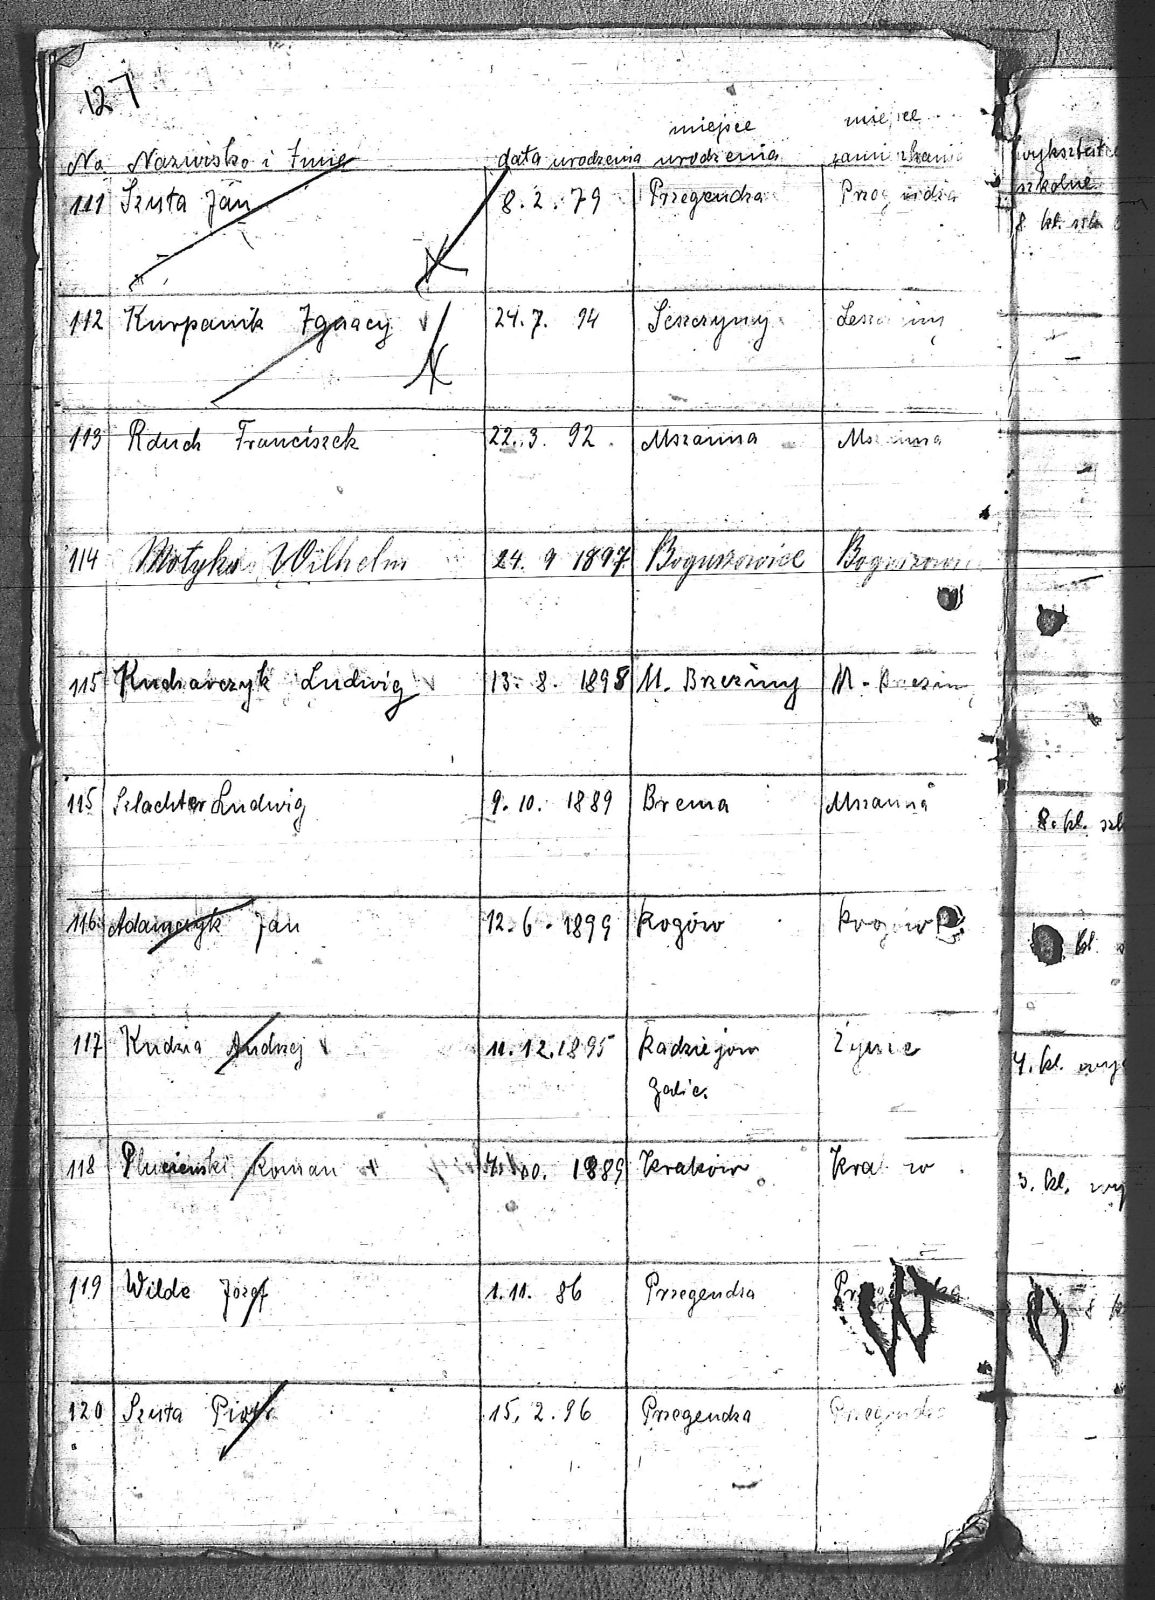 127
No Nazwisko i Imię data urodzenia miejsce urodzenia miejsce zamieszkania wykształce
szkolne
111 Szuta Jan 8.2.79 Przegendza Przegendza 8 kl. szk
112 Kurpanik Ignacy 24.7. 94 Leszczyny Leszczyny
113 Rduch Franciszek 22.3. 92. Mszanna Mszanna
114 Motyka Wilhelm 24. 9 1897 Boguszowice Boguszowice
115 Kucharczyk Ludwig 13. 8. 1898 M. Brzeziny M. Brzeziny
115 Szlachter Ludwig 9. 10. 1889 Brema Mszanna 8. kl. szk
116. Adamczyk Jan 12. 6. 1899 Rogów Rogów kl.
117 Kudzia Andrzej 11. 12. 1895 Radziejów Żytnie 4. kl. wy
Galic.
118 Roman 1889 Kraków Kraków 3. kl. wy
119 Wilde Józef 1. 11. 86 Przegendza Przegendza 8 k
W
120 Szuta Piotr 15. 2. 96 Przegendza Przegendza